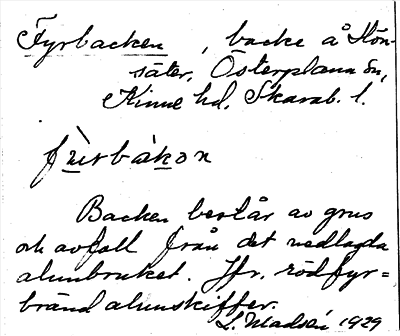 Fyrbacken, backe å Hön-
säter, Österplana sn,
Kinne hd, Skarab. l.
fùrbákon
Backen består av grus
och avfall från det nedlagda
alunbruket. Jfr. rödfyr=
bränd alunskiffer.
1929